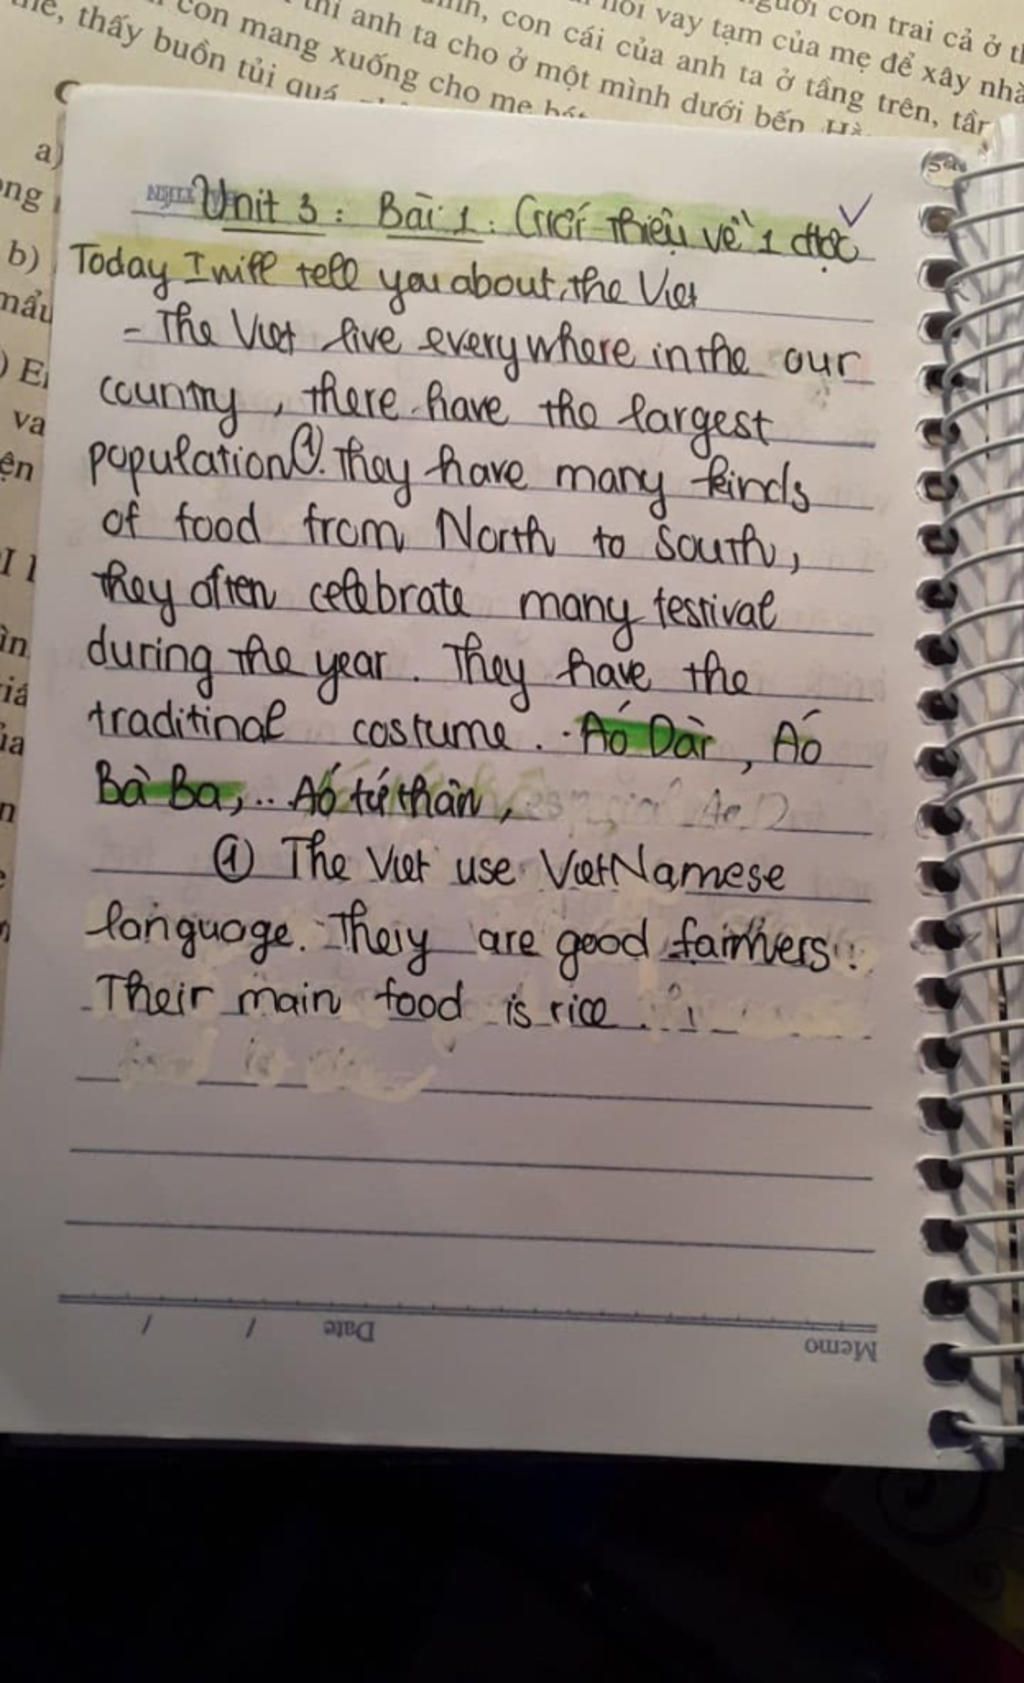 thấy buồn tủi quá
con mang xuống cho mẹ
thì anh ta cho ở một mình dưới bếp
con cái của anh ta ở tầng trên,
vay tạm của mẹ để xây nhà
con trai cả ở
a)
b)
va
Unit 3 : Bài 1 : Giới thiệu về 1 dtộc
Today I will tell you about, the Viet
- The Viet live everywhere in the our
country , there have the largest
population ①. They have many kinds
of food from North to South,
they often celebrate many festival
during the year . They have the
traditinal costume . Aó Dài , Aó
Bà Ba, .. Aó tứ thân ,
① The Viet use VietNamese
language. They are good farmers .
Their main food is rice .
Date / /
Memo